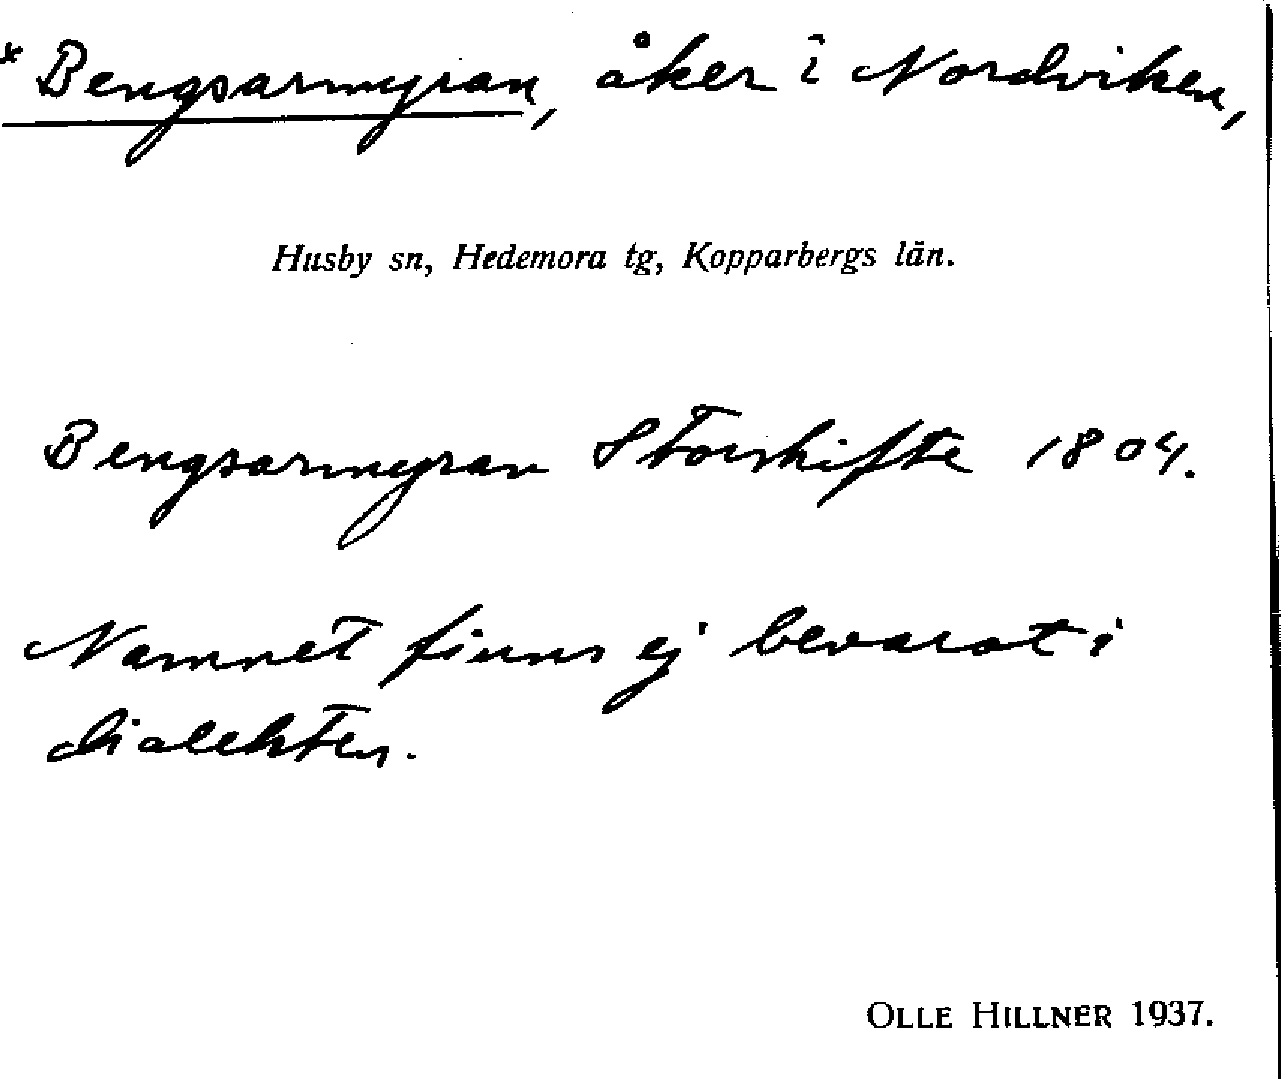 * Bengsarmyran, åker i Nordviken,
Husby sn, Hedemora tg, Kopparbergs län.
Bengsarmyran Storskifte 1804.
Namnet finns ej bevarat i
dialekten.
OLLE HILLNER 1937.